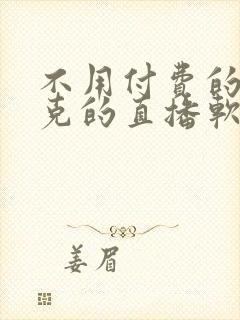 不用付费的
克的直播软
姜眉